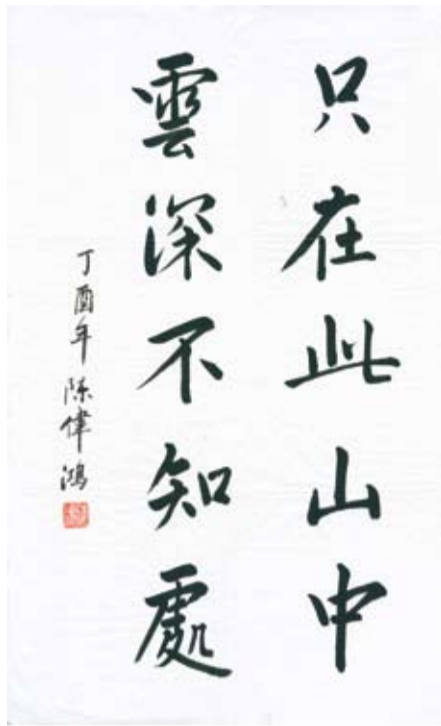 只在此山中
雲深不知處
丁酉年 陈偉鴻